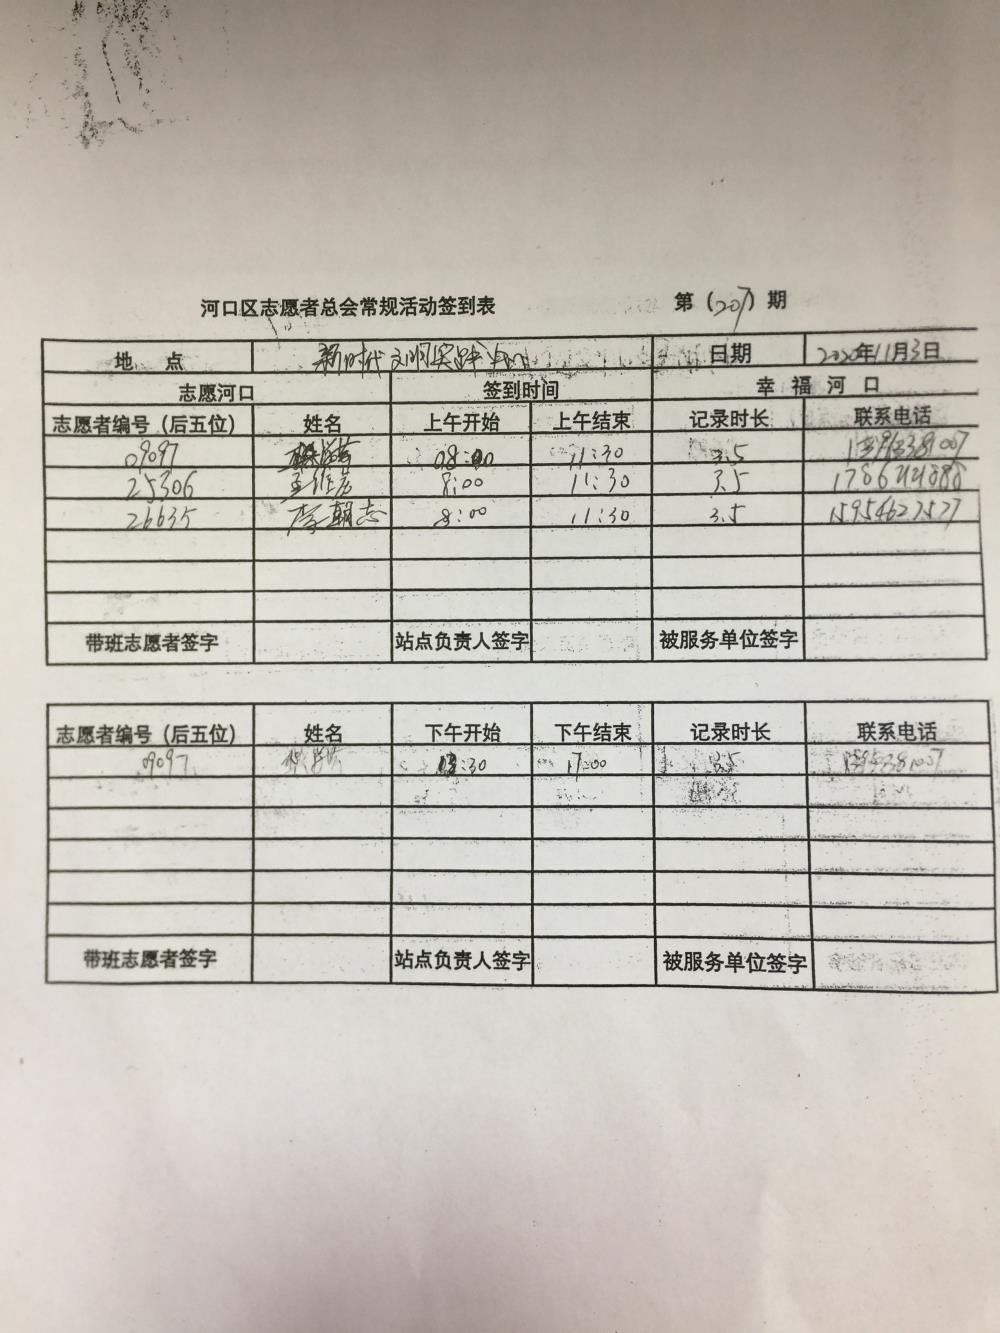 河口区志愿者总会常规活动签到表 第（207）期
地 点 新时代文明实践中心 日期 2020年11月3日
志愿河口 签到时间 幸 福 河 口
志愿者编号（后五位） 姓名 上午开始 上午结束 记录时长 联系电话
09097 08:00 11:30 3.5
25306 8:00 11:30 3.5
26635 李朝志 8:00 11:30 3.5 15954627527
带班志愿者签字 站点负责人签字 被服务单位签字
志愿者编号（后五位） 姓名 下午开始 下午结束 记录时长 联系电话
09097 13:30 17:00 3.5
带班志愿者签字 站点负责人签字 被服务单位签字